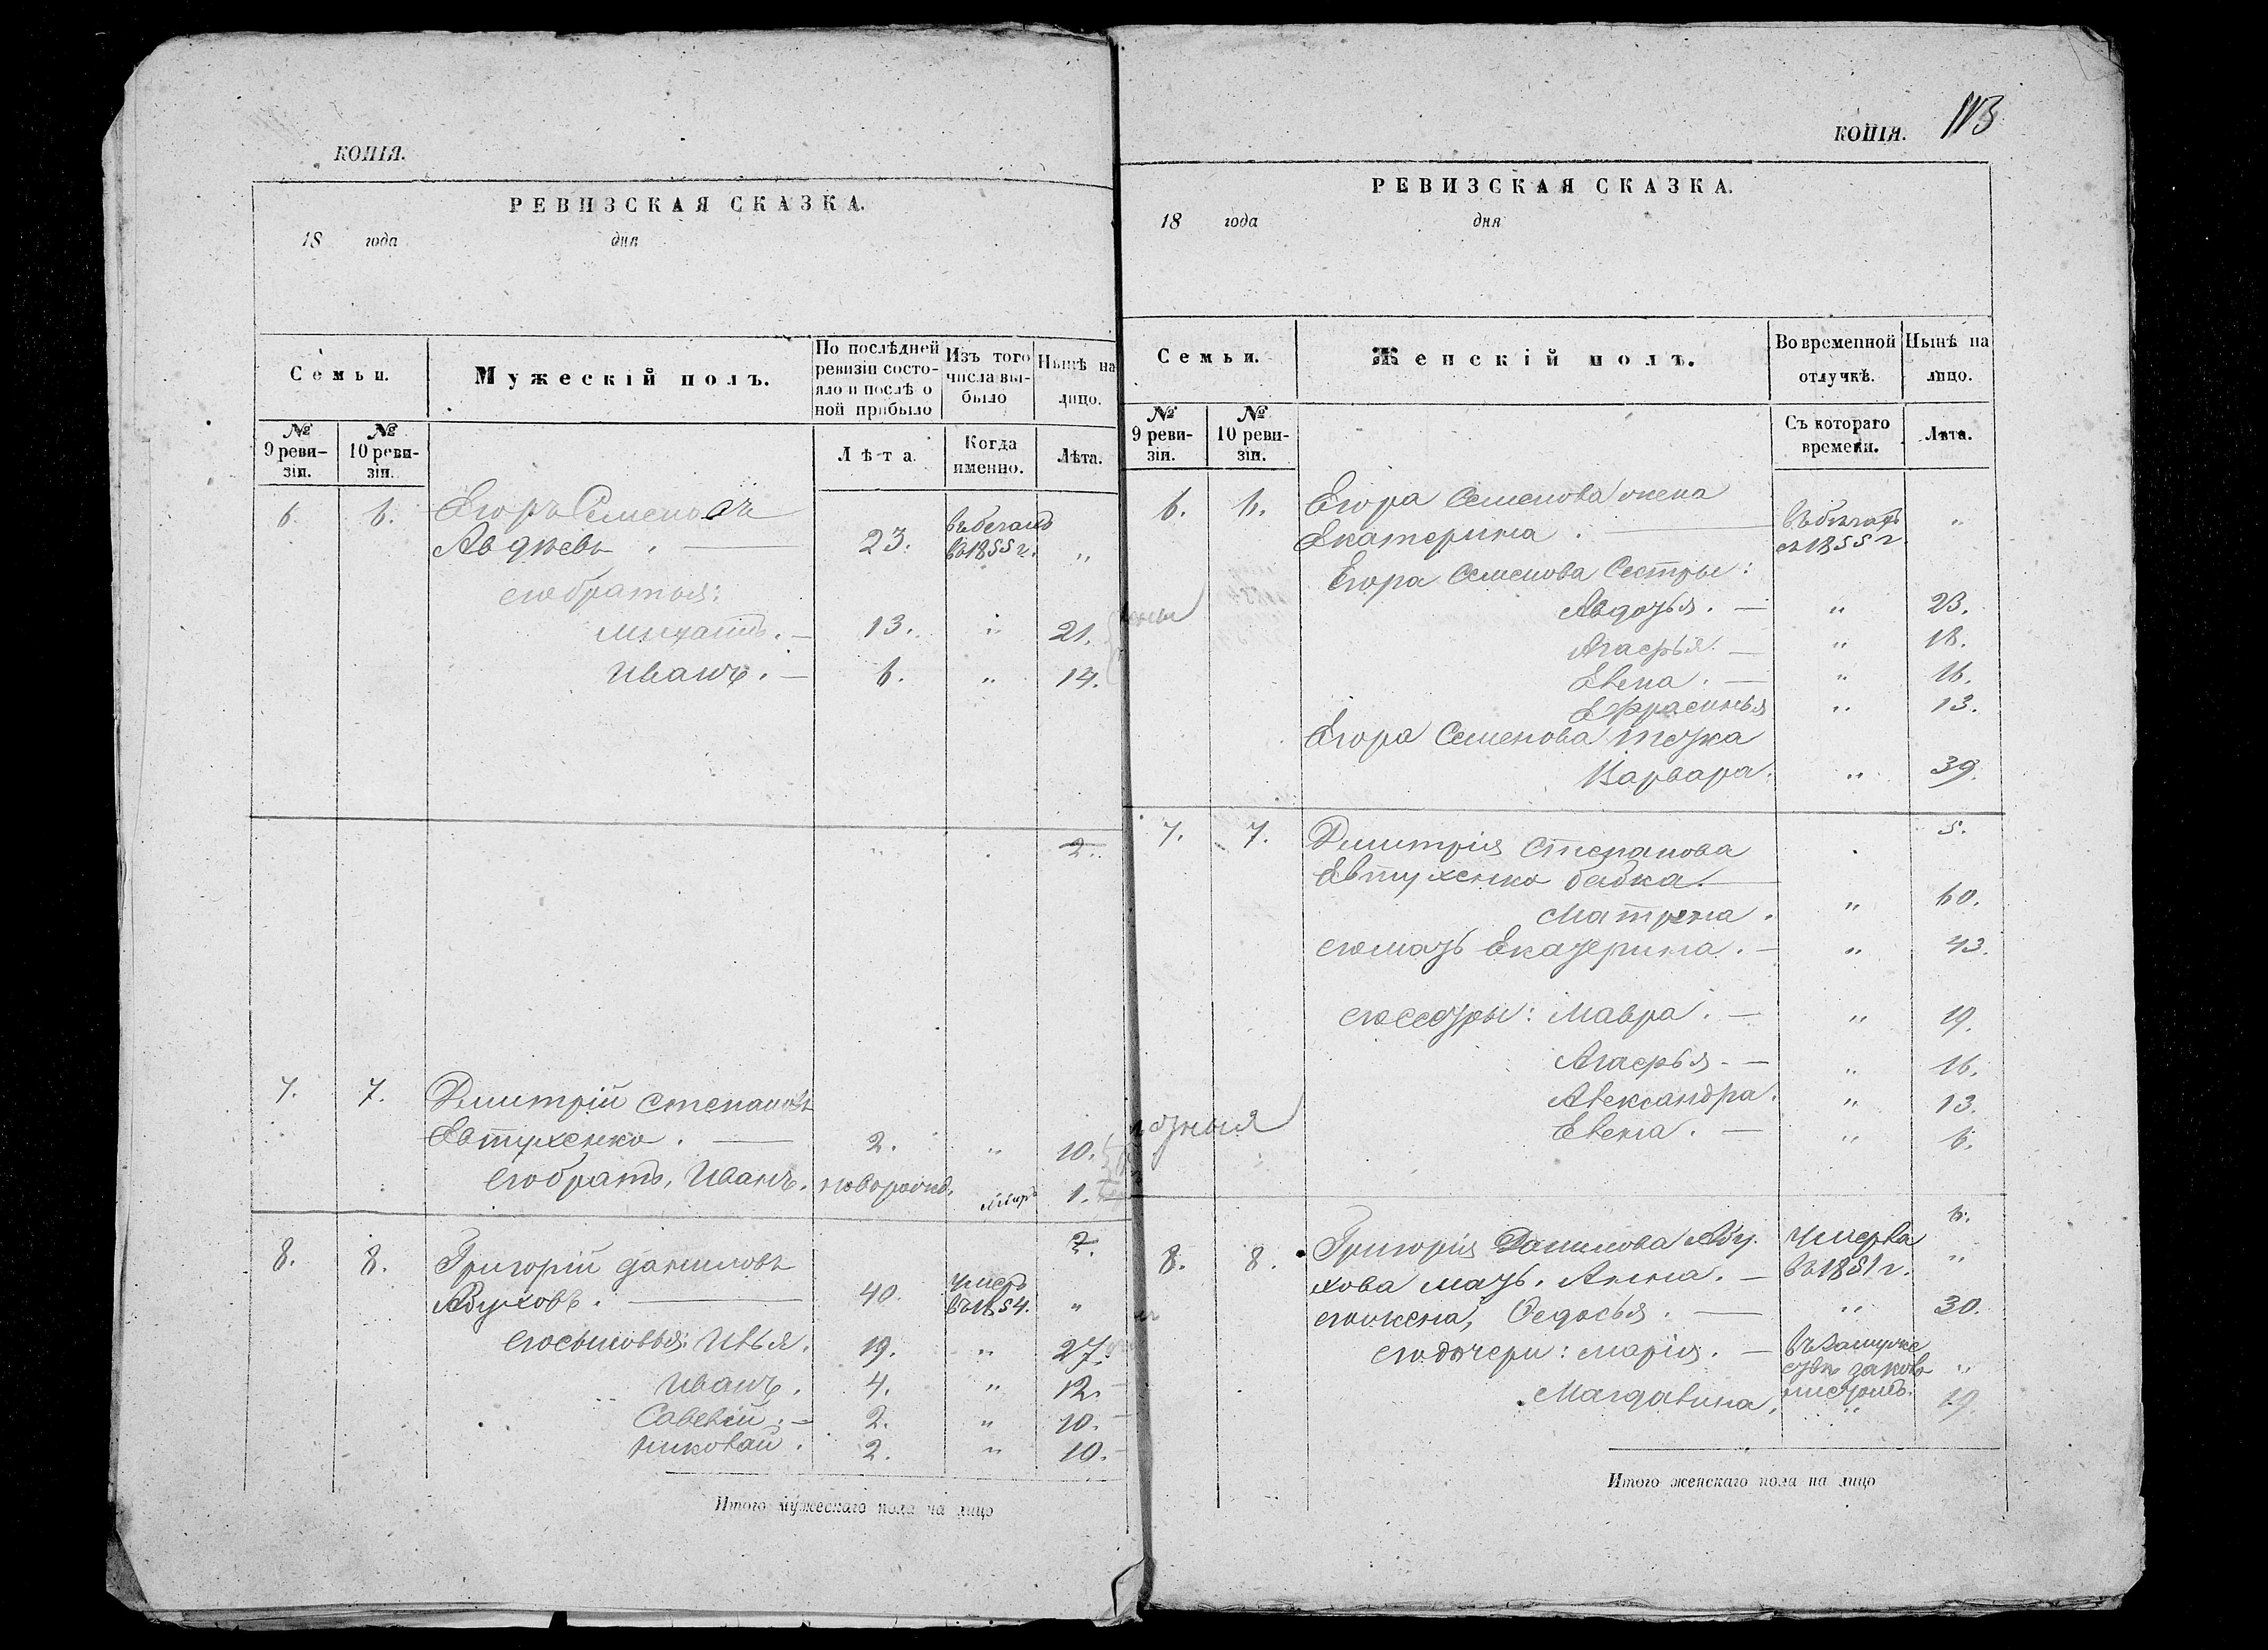 КОПІЯ.
РЕВИЗСКАЯ СКАЗКА.
18 года дня
Семьи. Мужескій полъ. По послѣдней ревизіи состояло и послѣ оной прибыло Изъ того числа выбыло Нынѣ на лицо.
№ 9 ревизіи. № 10 ревизіи. Лѣта. Когда именно. Лѣта.
6. 6. Егоръ Семеновъ
Авдѣевъ. 23. въ бегахъ въ 1855 г. „
его братья:
Михаилъ. 13. „ 21.
Иванъ. 6. „ 14.
„ 2.
7. 7. Дмитрій Степановъ
Евтухенко. 2. „ 10.
его братъ, Иванъ. новорожд. 1.
2.
8. 8. Григорій Даниловъ
Абуховъ. 40. умеръ въ 1854. „
его сыновья: Илья. 19. „ 27.
Иванъ. 4. „ 12.
Савелій. 2. „ 10.
Николай. 2. „ 10.
Итого мужескаго пола на лицо
КОПІЯ. 113
РЕВИЗСКАЯ СКАЗКА.
18 года дня
Семьи. Женскій полъ. Во временной отлучкѣ. Нынѣ на лицо.
№ 9 ревизіи. № 10 ревизіи. Съ котораго времени. Лѣта.
6. 6. Егора Семенова жена
Екатерина. въ бѣгахъ съ 1855 г. „
Егора Семенова Сестры:
Авдотья. „ 23.
Агафья. „ 18.
Елена. „ 16.
Ефросинья „ 13.
Егора Семенова тетка
Варвара. „ 39.
5.
7. 7. Дмитрія Степанова
Евтухенко бабка.
Матрена. „ 60.
его мать Екатерина. „ 43.
его сестры: Мавра. „ 19.
Агафья. „ 16.
Александра. „ 13.
Елена. „ 6.
6.
8. 8. Григорія Данилова Абу-
хова мать. Анна. Умерла въ 1851 г. „
его жена, Федосья. „ 30.
его дочери: Марія. „
Магдалина. „ 19.
Итого женскаго пола на лицо